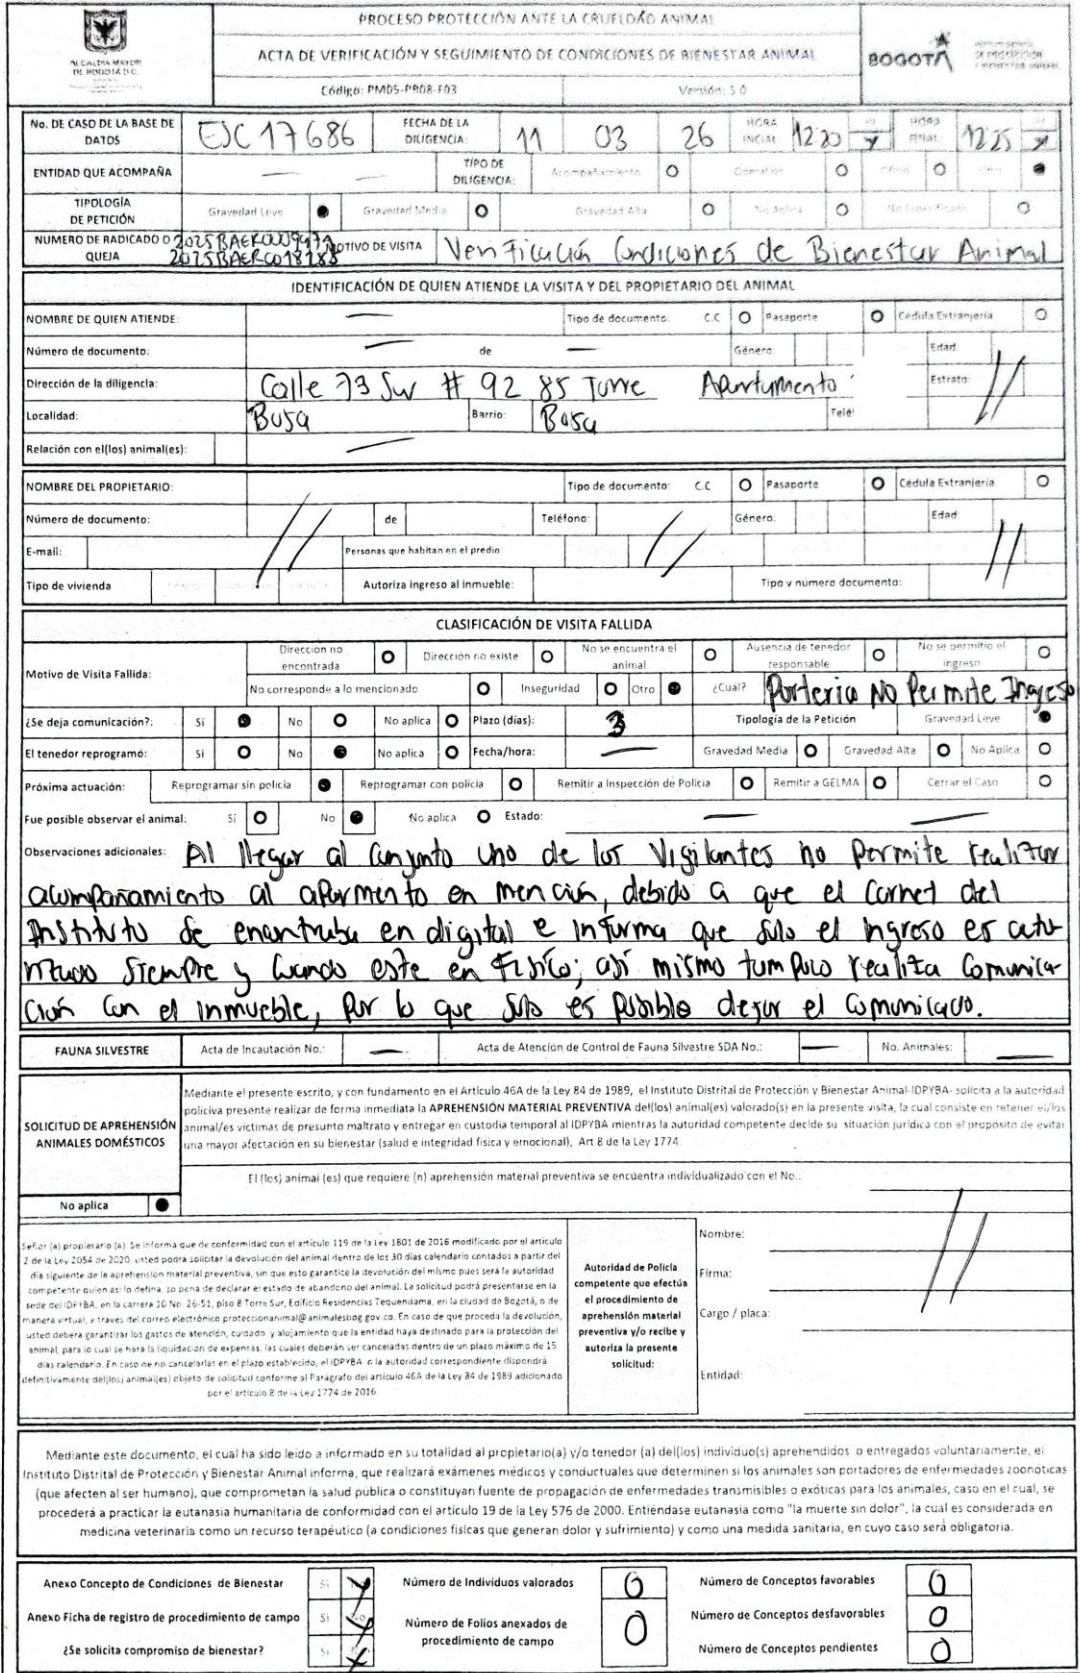 PROCESO PROTECCIÓN ANTE LA CRUELDAD ANIMAL
ALCALDÍA MAYOR
DE BOGOTÁ D.C.
ACTA DE VERIFICACIÓN Y SEGUIMIENTO DE CONDICIONES DE BIENESTAR ANIMAL
BOGOTÁ
Código: PM05-PR08-F03 Versión: 5.0
No. DE CASO DE LA BASE DE DATOS EJC 17686 FECHA DE LA DILIGENCIA: 11 03 26 HORA INICIAL 12 20 HORA FINAL 12 25
ENTIDAD QUE ACOMPAÑA — — TIPO DE DILIGENCIA: Acompañamiento Operativo Oficio
TIPOLOGÍA DE PETICIÓN Gravedad Leve Gravedad Media Gravedad Alta No Aplica
NUMERO DE RADICADO O QUEJA 2025BAER0018188 MOTIVO DE VISITA Verificación Condiciones de Bienestar Animal
IDENTIFICACIÓN DE QUIEN ATIENDE LA VISITA Y DEL PROPIETARIO DEL ANIMAL
NOMBRE DE QUIEN ATIENDE: — Tipo de documento: C.C Pasaporte Cédula Extranjería
Número de documento: — de — Género: Edad
Dirección de la diligencia: Calle 73 Sur # 92 85 Torre Apartumento Estrato:
Localidad: Bosa Barrio: Bosa Telé
Relación con el(los) animal(es): —
NOMBRE DEL PROPIETARIO: Tipo de documento: C.C Pasaporte Cédula Extranjería
Número de documento: // de Teléfono: // Género: Edad //
E-mail: Personas que habitan en el predio
Tipo de vivienda Autoriza ingreso al inmueble: Tipo y número documento:
CLASIFICACIÓN DE VISITA FALLIDA
Motivo de Visita Fallida: Dirección no encontrada Dirección no existe No se encuentra el animal Ausencia de tenedor responsable No se permitió el ingreso
No corresponde a lo mencionado Inseguridad Otro ¿Cual? Porteria No Permite Ingreso
¿Se deja comunicación?: Si No No aplica Plazo (días): 3 Tipología de la Petición Gravedad Leve
El tenedor reprogramó: Si No No aplica Fecha/hora: — Gravedad Media Gravedad Alta No Aplica
Próxima actuación: Reprogramar sin policía Reprogramar con policía Remitir a Inspección de Policía Remitir a GELMA Cerrar el Caso
Fue posible observar el animal: Si No No aplica Estado: — —
Observaciones adicionales: Al llegar al Conjunto uno de los Vigilantes no permite realizar
acompañamiento al aparmento en mención, debido a que el Carnet del
Instituto se encontraba en digital e informa que solo el ingreso es auto-
rizado siempre y Cuando este en fisico; asi mismo tampoco realiza Comunica
ción con el inmueble, por lo que solo es posible dejar el comunicado.
FAUNA SILVESTRE Acta de Incautación No.: — Acta de Atención de Control de Fauna Silvestre SDA No.: — No. Animales: —
SOLICITUD DE APREHENSIÓN ANIMALES DOMÉSTICOS
Mediante el presente escrito, y con fundamento en el Artículo 46A de la Ley 84 de 1989, el Instituto Distrital de Protección y Bienestar Animal-IDPYBA- solicita a la autoridad
policiva presente realizar de forma inmediata la APREHENSIÓN MATERIAL PREVENTIVA del(los) animal(es) valorado(s) en la presente visita, la cual consiste en retener el/los
animal/es victimas de presunto maltrato y entregar en custodia temporal al IDPYBA mientras la autoridad competente decide su situación jurídica con el propósito de evitar
una mayor afectación en su bienestar (salud e integridad física y emocional), Art 8 de la Ley 1774
El (los) animal (es) que requiere (n) aprehensión material preventiva se encuentra individualizado con el No.:
No aplica
Señor (a) propietario (a). Se informa que de conformidad con el artículo 119 de la Ley 1801 de 2016 modificado por el artículo
2 de la Ley 2054 de 2020, usted podrá solicitar la devolución del animal dentro de los 30 días calendario contados a partir del
día siguiente de la aprehensión material preventiva, sin que esto garantice la devolución del mismo pues será la autoridad
competente quien así lo defina, so pena de declarar el estado de abandono del animal. La solicitud podrá presentarse en la
sede del IDPYBA, en la carrera 10 No. 26-51, piso 8 Torre Sur, Edificio Residencias Tequendama, en la ciudad de Bogotá, o de
manera virtual, a través del correo electrónico proteccionanimal@animalesbog.gov.co. En caso de que proceda la devolución,
usted deberá garantizar los gastos de atención, cuidado y alojamiento que la entidad haya destinado para la protección del
animal, para lo cual se hará la liquidación de expensas, las cuales deberán ser canceladas dentro de un plazo máximo de 15
días calendario. En caso de no cancelarlas en el plazo establecido, el IDPYBA o la autoridad correspondiente dispondrá
definitivamente del(los) animal(es) objeto de solicitud conforme al Paragrafo del artículo 46A de la Ley 84 de 1989 adicionado
por el artículo 8 de la Ley 1774 de 2016
Autoridad de Policía
competente que efectúa
el procedimiento de
aprehensión material
preventiva y/o recibe y
autoriza la presente
solicitud:
Nombre:
Firma:
Cargo / placa:
Entidad:
Mediante este documento, el cual ha sido leído e informado en su totalidad al propietario(a) y/o tenedor (a) del(los) individuo(s) aprehendidos o entregados voluntariamente, el
Instituto Distrital de Protección y Bienestar Animal informa, que realizará exámenes médicos y conductuales que determinen si los animales son portadores de enfermedades zoonóticas
(que afecten al ser humano), que comprometan la salud publica o constituyan fuente de propagación de enfermedades transmisibles o exóticas para los animales, caso en el cual, se
procederá a practicar la eutanasia humanitaria de conformidad con el artículo 19 de la Ley 576 de 2000. Entiéndase eutanasia como "la muerte sin dolor", la cual es considerada en
medicina veterinaria como un recurso terapéutico (a condiciones físicas que generan dolor y sufrimiento) y como una medida sanitaria, en cuyo caso será obligatoria.
Anexo Concepto de Condiciones de Bienestar Si X Número de Individuos valorados 0 Número de Conceptos favorables 0
Anexo Ficha de registro de procedimiento de campo Si X Número de Folios anexados de procedimiento de campo 0 Número de Conceptos desfavorables 0
¿Se solicita compromiso de bienestar? Si X Número de Conceptos pendientes 0